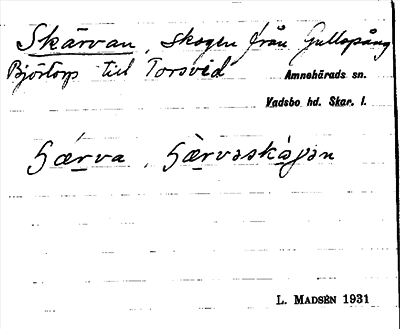 Skärvan, skogen från Gullspång
Björtorp till Torsvid
Amnehärads sn.
Vadsbo hd. Skar. l.
L. MADSÉN 1931